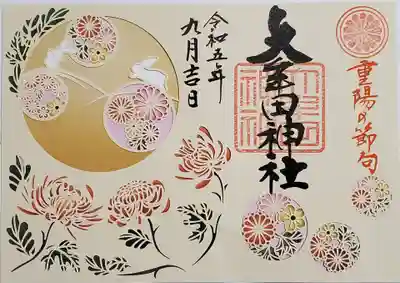 重陽の節句
田神社
令和五年
九月吉日